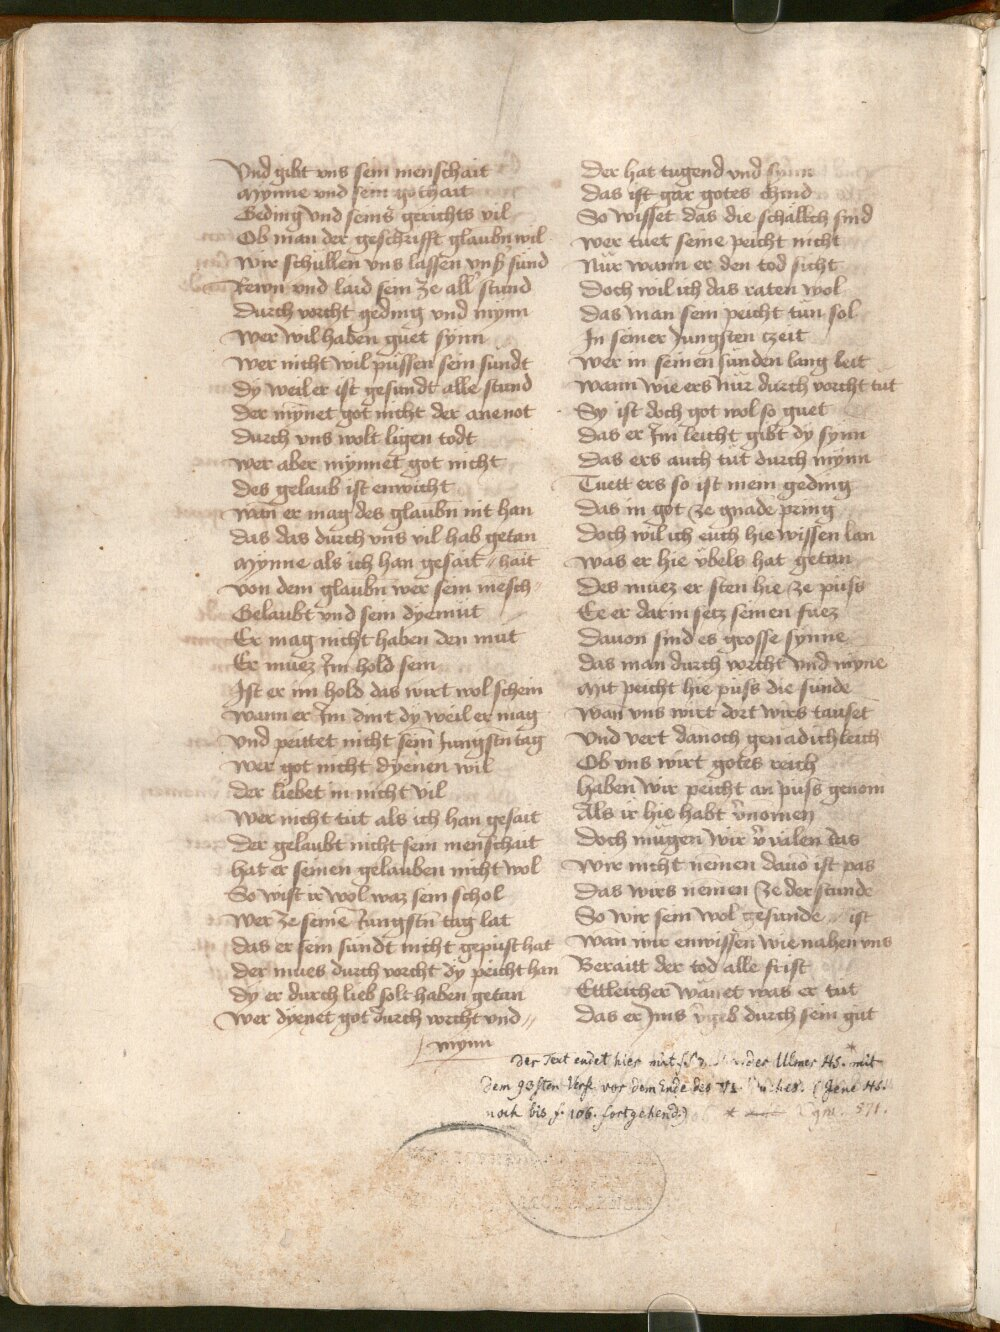 Vnd gibt vns sein menschait
Mynne vnd sein gothait
Geding vnd seins gerichts vil
Ob man der geschrifft glaubn wil
Wir schullen vns lassen vnsˀ sund
Rewn vnd laid sein ze all stund
Durch vorcht geding vnd mynn
Wer wil haben guet synn
Wer nicht wil püssen sein sündt
Dy weil er ist gesundt alle stund
Der mynet got nicht der ane not
Durch vns wolt ligen todt
Wer aber mynnet got nicht
Des gelaub ist enwicht
Wan er mag des glaubn nit han
Das das durch vns vil hab getan
Mynne als ich han gesait // hait
Von dem glaubn wer sein mesch //
Gelaubt vnd sein dyemüt
Er mag nicht haben den mut
Er muez Im hold sein
Ist er im hold das wirt wol schein
Wann er Im dint dy weil er mag
Vnd peittet nicht seiñ Jungstn tag
Wer got nicht dyenen wil
Der liebet in nicht vil
Wer nicht tüt als ich han gesait
Der gelaubt nicht sein menschait
Hat er seinen gelauben nicht wol
So wist ir wol waz sein schol
Wer ze seinē Jungstn̄ tag lat
Das er sein sündt nicht gepüst hat
Der mues durch vorcht dy peicht han
Dy er durch lieb solt haben getan
Wer dyenet got durch vorcht vnd //
mynn
Der hat tugend vnd synn
Das ist gar gotes chind
So wisset das die schälkch sind
Wer tuet seine peicht nicht
Nür wann er den tod sicht
Doch wil ich das raten wol
Das man sein peicht tün sol
In seiner Jungsten czeit
Wer in seinen sünden lang leit
Wann wie ers nür durch vorcht tüt
Sy ist doch got wol so guet
Das er Im leicht gibt dy synn
Das ers auch tüt durch mynn
Tuett ers so ist mein geding
Das in got ze gnade pring
Doch wil ich euch hie wissen lan
Was er hie vbels hat getan
Des muez er sten hie ze puss
Ee er darin setz seinen fuez
Dauon sind es grosse synne
Das man durch vorcht vnd myne
Mit peicht hie puss die sunde
Wan vns wirt dort wirs tauset
Vnd vert danoch genadichleich
Ob vns wirt gotes reich
Haben wir peicht an puss genom
Als ir hie habt v̄nomen
Doch mugen wir v̄ vilen das
Wir nicht nemen dauō ist pas
Das wirs nemen ze der stunde
So wir sein wol gesunde // ist
Wan wir enwissen wie nahen vns
Beraitt der tod alle frist
Ettleicher wänet was er tut
Das er Ims v̄geb durch sein güt
Der Text endet hier mit der Ulmer Hs. mit
dem 93sten Vers vor dem Ende des VI. Buches. (Jene Hs.
noch bis f. 106. fortgehend.) Cgm. 571.